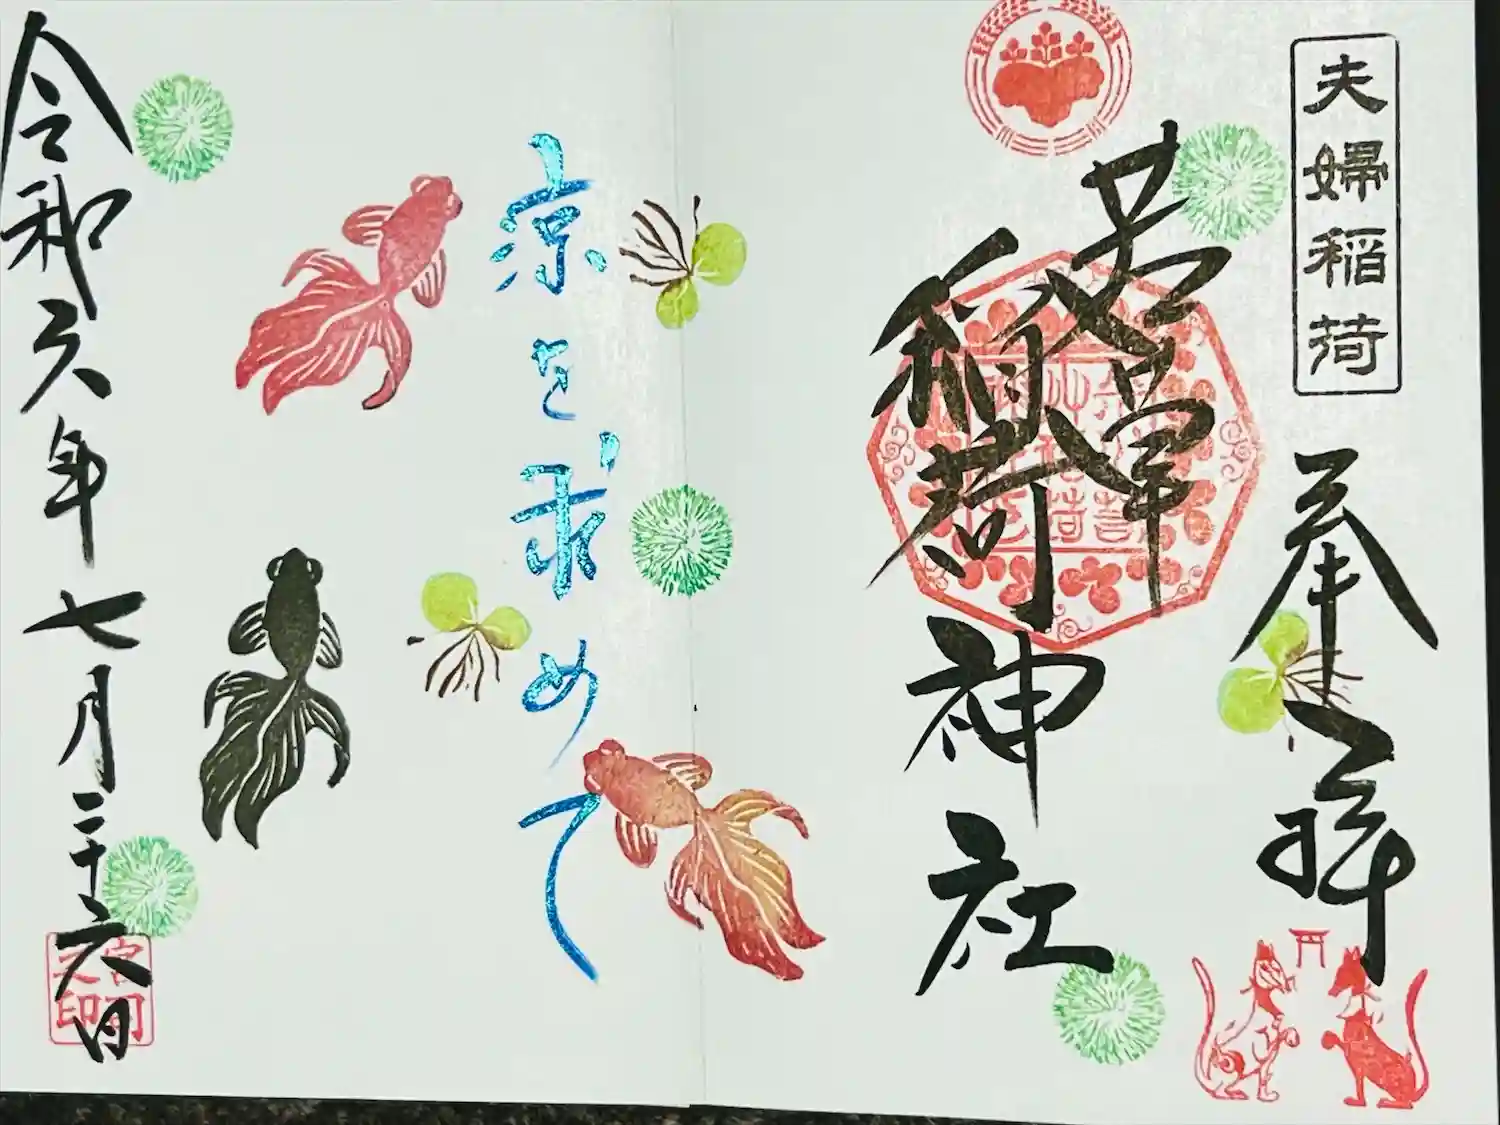 夫婦稲荷
奉拝
若草
稲荷神社
涼を求めて
令和六年七月二十六日
宮司
之印